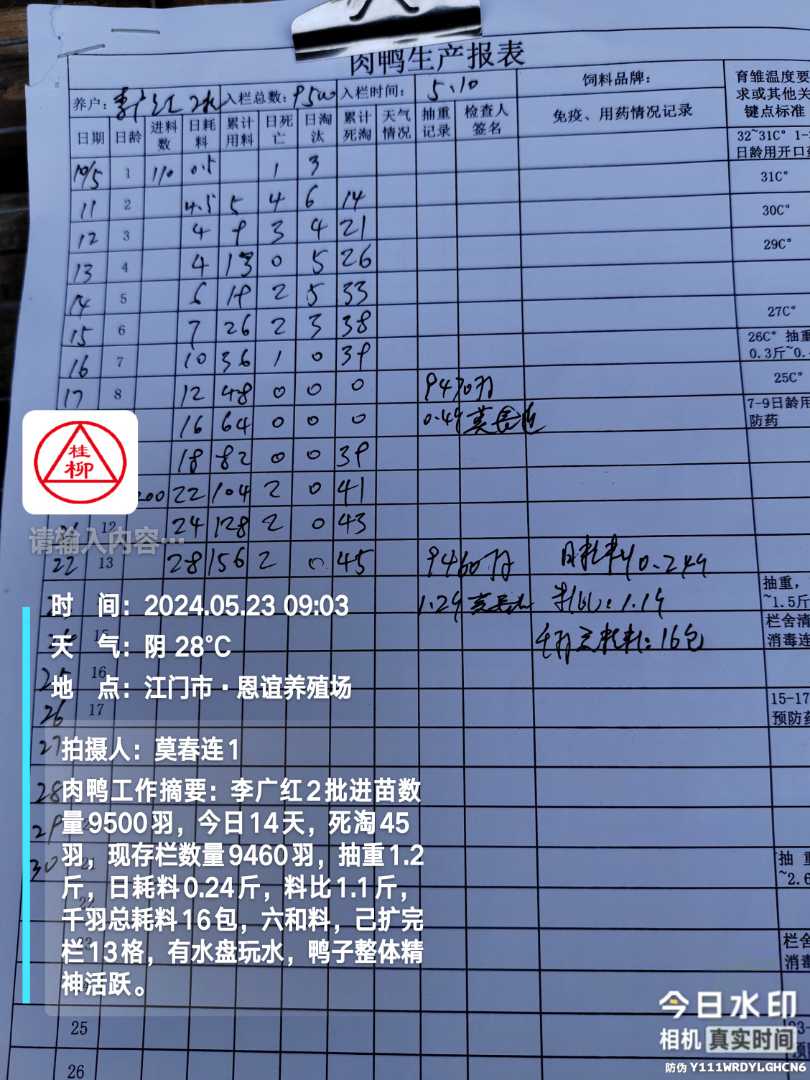 肉鸭生产报表
养户: 李广红 2批 入栏总数: 9500 入栏时间: 5.10 饲料品牌: 育雏温度要
求或其他关
键点标准
日期 日龄 进料数 日耗料 累计用料 日死亡 日淘汰 累计死淘 天气情况 抽重记录 检查人签名 免疫、用药情况记录
32~31C° 1-
日龄用开口药
10/5 1 110 0.5 1 3
31C°
11 2 4.5 5 4 6 14
30C°
12 3 4 9 3 4 21
29C°
13 4 4 13 0 5 26
14 5 6 19 2 5 33
27C°
15 6 7 26 2 3 38
26C° 抽重
0.3斤~0.
16 7 10 36 1 0 39
25C°
17 8 12 48 0 0 0 9470羽
7-9日龄用
防药
16 64 0 0 0 0.49 莫春连
18 82 0 0 39
200 22 104 2 0 41
12 24 128 2 0 43
22 13 28 156 2 0 45 9460羽 日耗料 0.24斤
1.2斤 莫春连 料比: 1.1斤
抽重,
~1.5斤
千羽总耗料: 16包
栏舍清
消毒连
25 16
26 17
15-17
预防药
27
28
29
30
抽重
~2.6
栏舍
消毒
25
26
桂柳
请输入内容…
时 间: 2024.05.23 09:03
天 气: 阴 28℃
地 点: 江门市·恩谊养殖场
拍摄人: 莫春连1
肉鸭工作摘要: 李广红2批进苗数
量9500羽, 今日14天, 死淘45
羽, 现存栏数量9460羽, 抽重1.2
斤, 日耗料0.24斤, 料比1.1斤,
千羽总耗料16包, 六和料, 己扩完
栏13格, 有水盘玩水, 鸭子整体精
神活跃。
今日水印
相机 真实时间
防伪 Y111WRDYLGHCN6